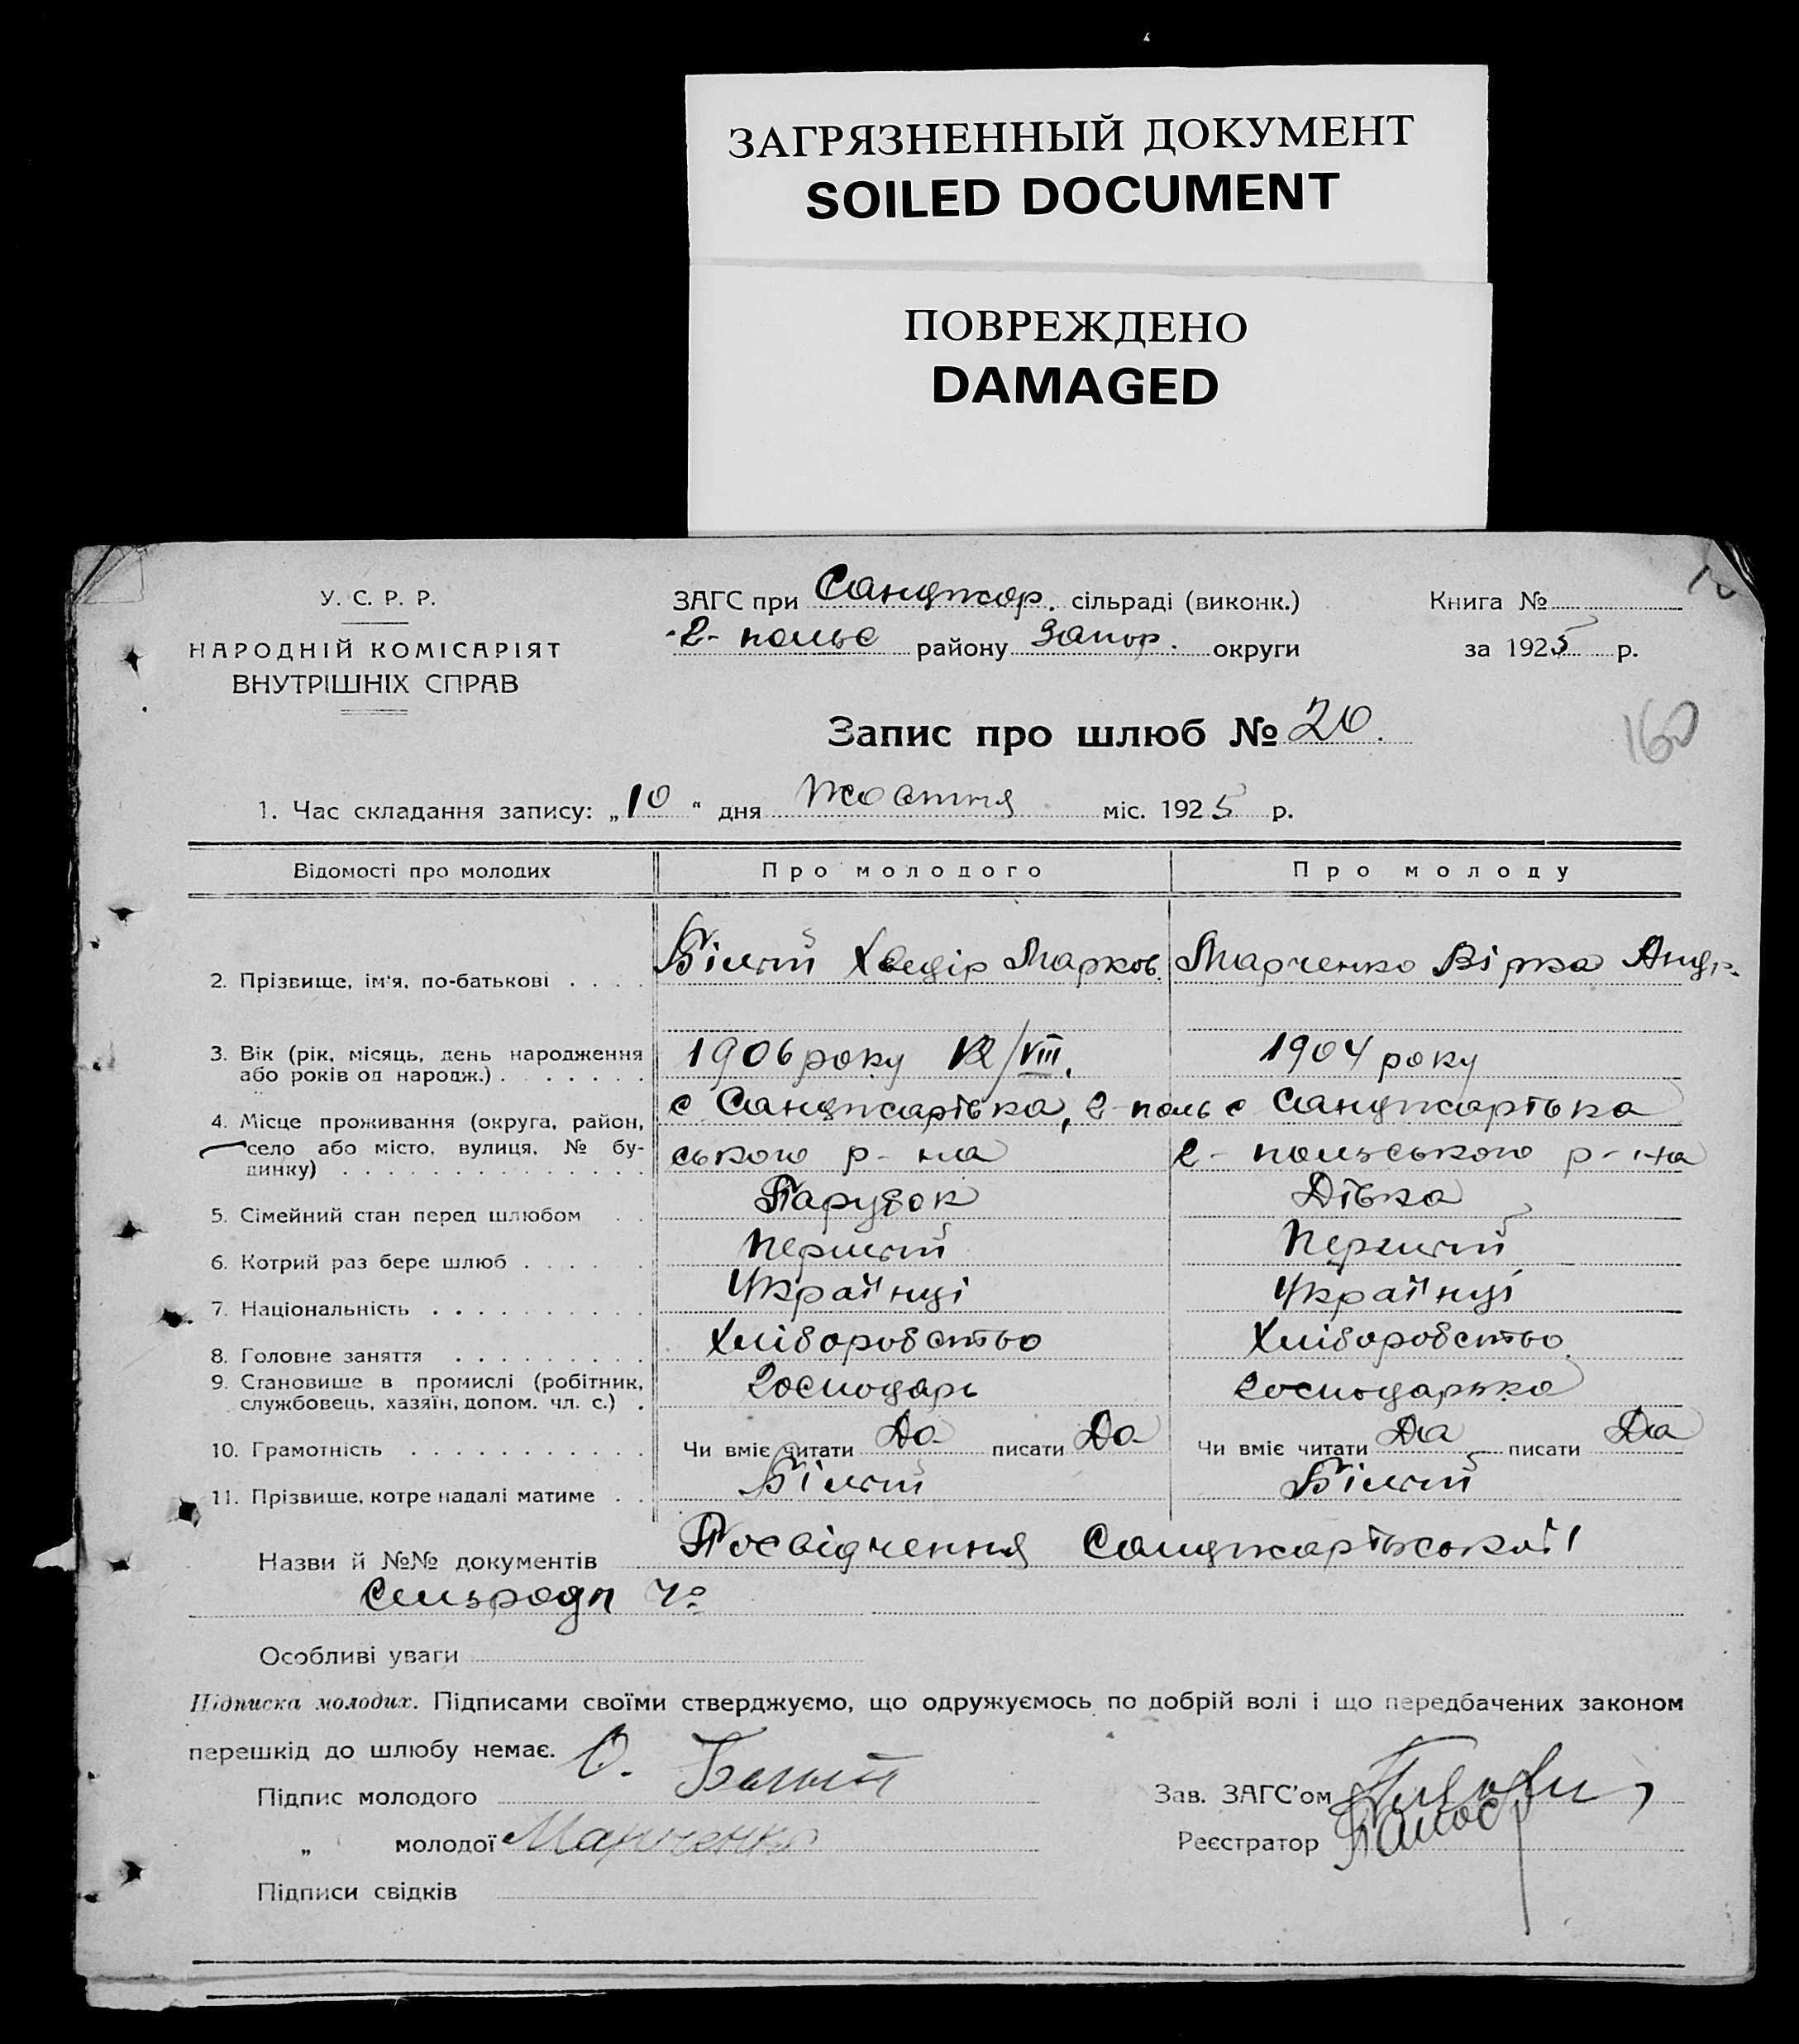 ЗАГРЯЗНЕННЫЙ ДОКУМЕНТ
SOILED DOCUMENT
ПОВРЕЖДЕНО
DAMAGED
У. С. Р. Р.
НАРОДНІЙ КОМІСАРІЯТ
ВНУТРІШНІХ СПРАВ
ЗАГС при Санджар. сільраді (виконк.)
2-польс району Запор. округи
Книга №
за 1925 р.
Запис про шлюб № 20.
160
1. Час складання запису: „10" дня Жовтня міс. 1925 р.
Відомості про молодих Про молодого Про молоду
2. Прізвище, ім'я, по-батькові . . . . Білий Хведір Марков. Марченко Вірка Андр.
3. Вік (рік, місяць, день народження
або років од народж.) . . . . . . . 1906 року 12/VIII. 1904 року
4. Місце проживання (округа, район,
село або місто, вулиця, № бу-
динку) . . . . . . . . . . . . . . .
с Санджарівка, 2-поль
ського р-на
с Санджарівка
2-польського р-на
5. Сімейний стан перед шлюбом . . Парубок Дівка
6. Котрий раз бере шлюб . . . . . Перший Перший
7. Національність . . . . . . . . . . Українці Українці
8. Головне заняття . . . . . . . . . Хліборобство Хліборобство
9. Становище в промислі (робітник,
службовець, хазяїн, допом. чл. с.) . Господарь Господарька
10. Грамотність . . . . . . . . . . . Чи вміє читати Да писати Да Чи вміє читати Да писати Да
11. Прізвище, котре надалі матиме . . Білий Білий
Назви й №№ документів Посвідчення Санджарівської
Сельради
Особливі уваги
Підписка молодих. Підписами своїми стверджуємо, що одружуємось по добрій волі і що передбачених законом
перешкід до шлюбу немає.
Підпис молодого Белый
Зав. ЗАГС'ом
„ молодої Марченко
Реєстратор
Підписи свідків